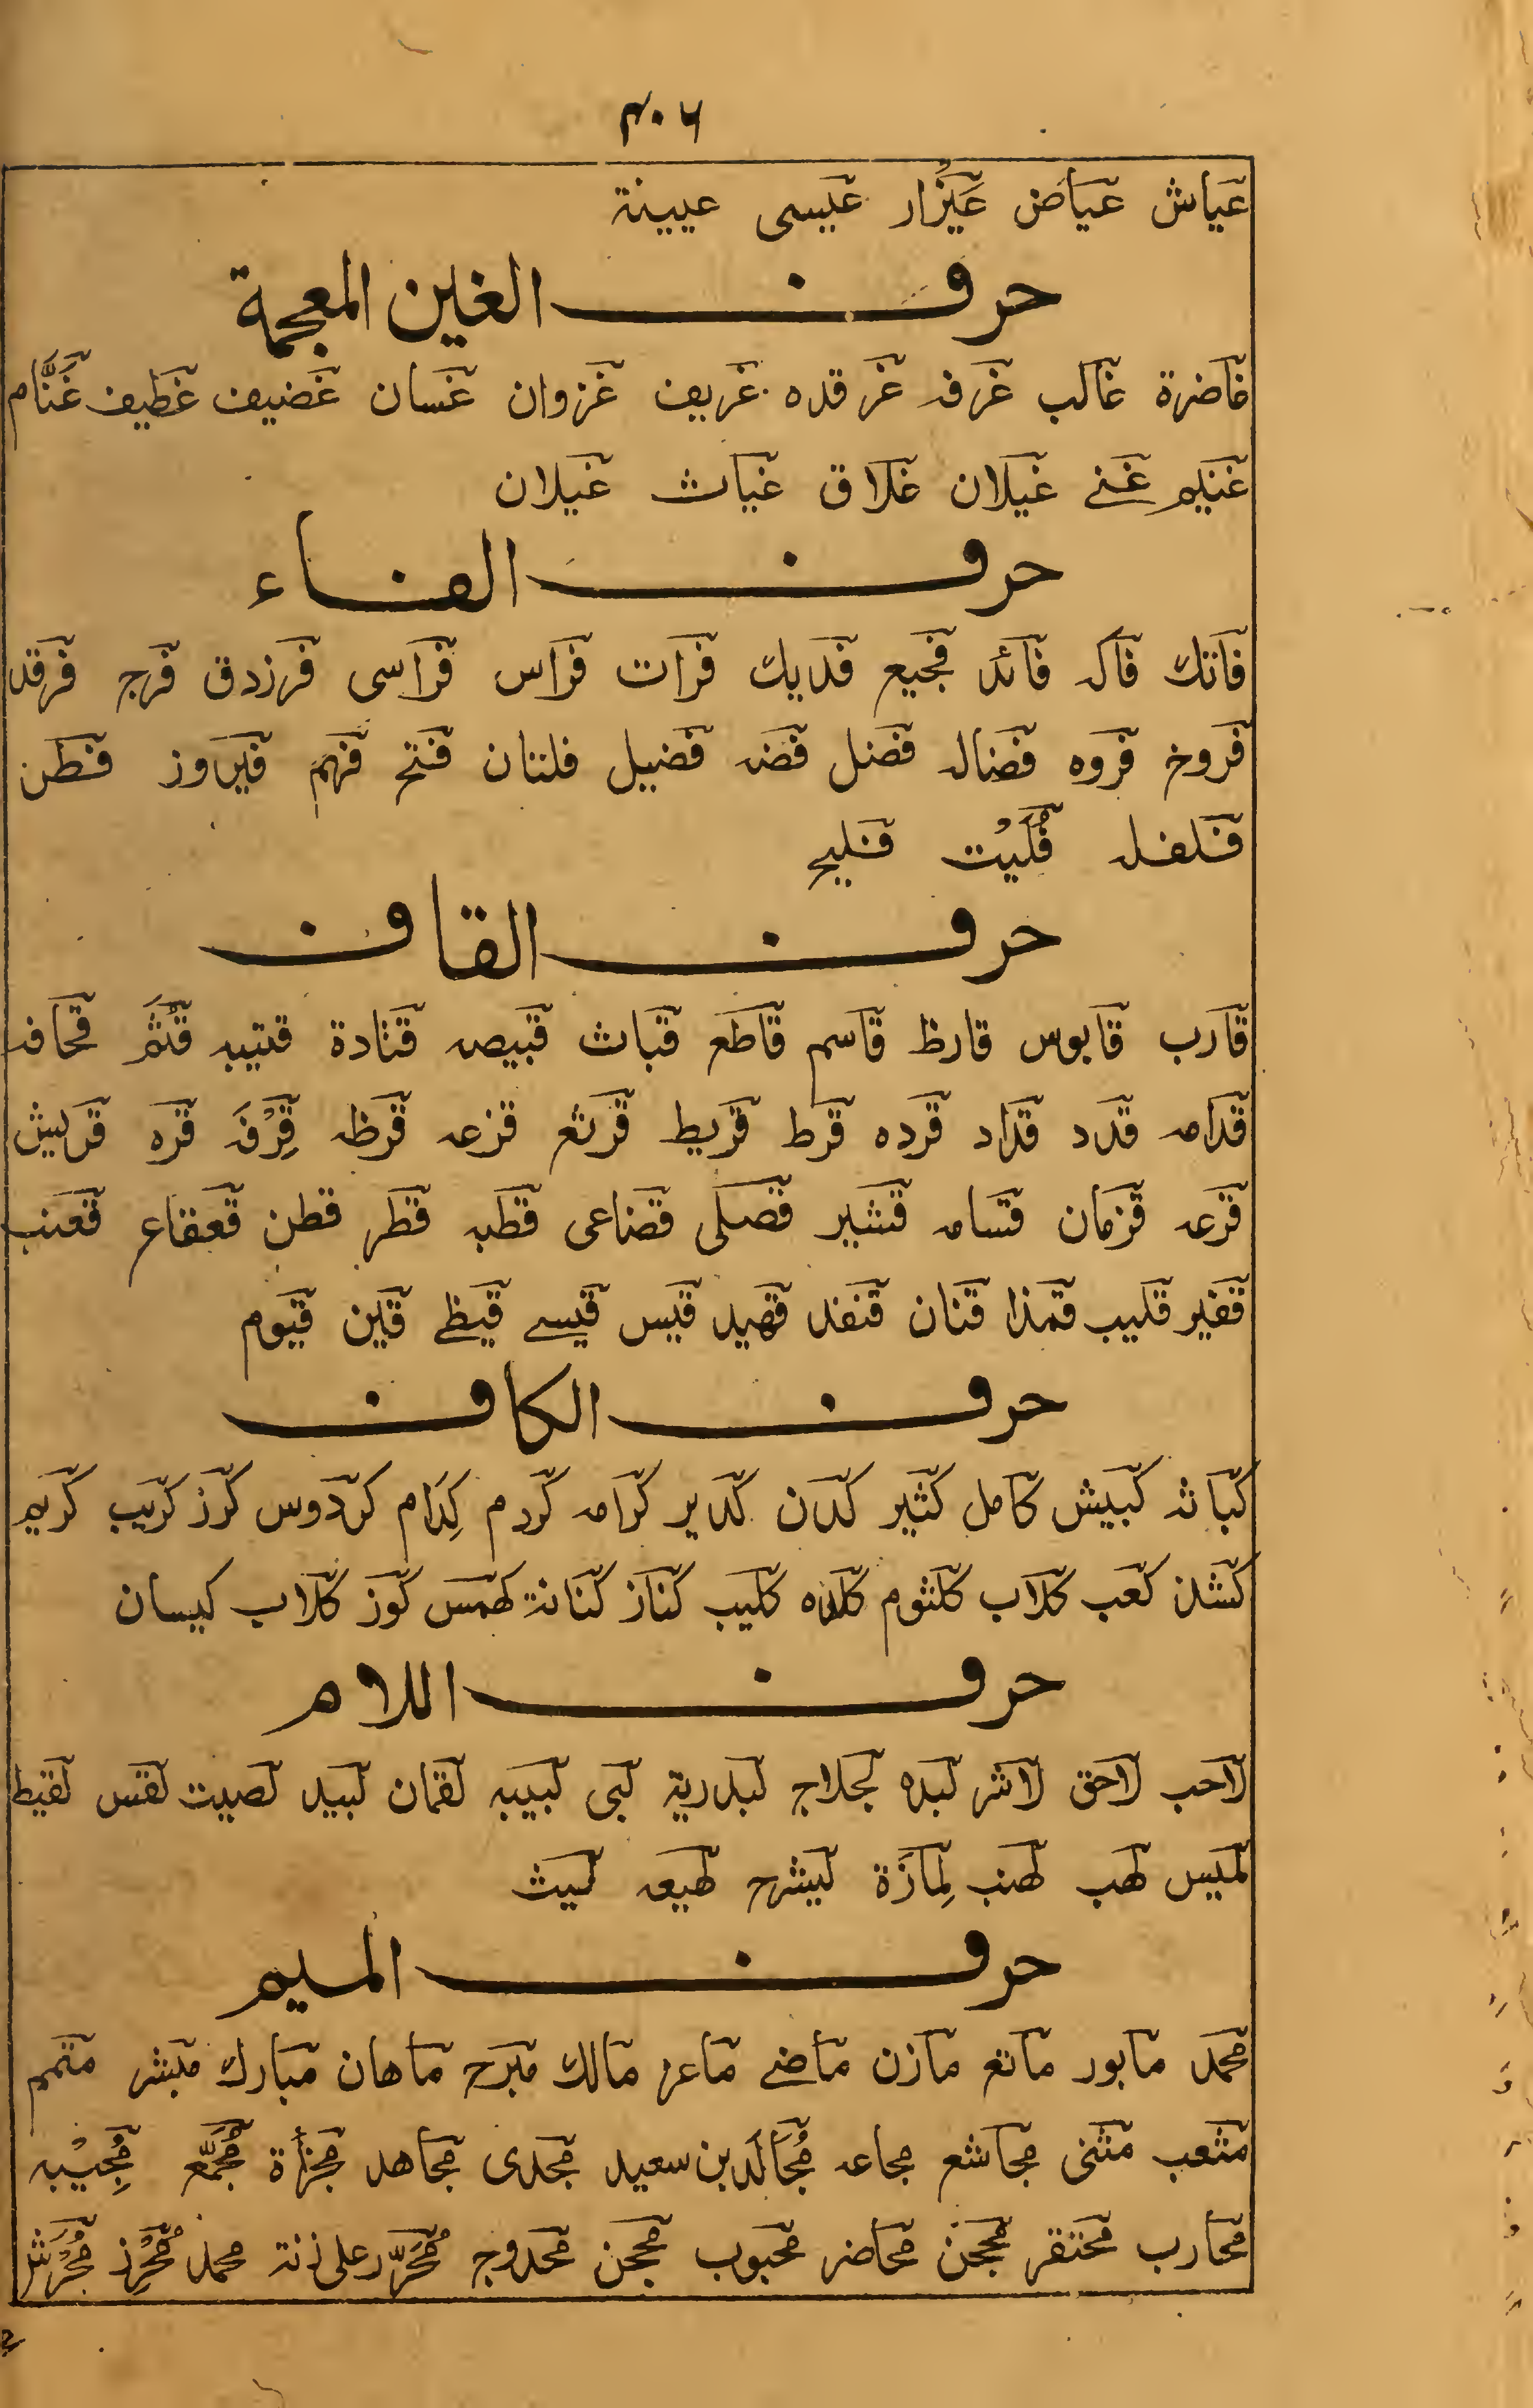 ۴۰۶
عياش عياض عَيْزار عيسى عيينة
حرف الغين المعجمة
غاضرة غالب غرفه غرقده غريف غزوان غسان غضيف غطيف غَنَّام
غنيم غنے غيلان غلاق غياث غيلان
حرف الفاء
فاتك فاكه فائد فجيع فديك فرات فراس فراسى فرزدق فرج فرقد
فروخ فروه فضاله فضل فضه فضيل فلتان فتح فهم فيروز فطن
فلفله فُلَيْت فليح
حرف القاف
قارب قابوس قارظ قاسم قاطع قباث قبيصه قتادة قتيبه قُثَم قحافه
قدامه قدد قداد قرده قرط قريط قرثع قزعه قرظه قِرْفَه قره قريش
قرعه قزمان قسامه قشير قصلى قضاعى قطبه قطر قطن قعقاع قعنب
قفير قليب قمذا قنان قنفذ قهيد قيس قيسے قيظے قين قيوم
حرف الكاف
كباثه كبيش كامل كثير كدن كدير كرامه كردم كِرَام كردوس كرز كريب كريم
كشذ كعب كلاب كلثوم كلده كليب كناز كنانة كهمس كوز كلاب كيسان
حرف اللام
لاحب لاحق لاشر لبده لجلاج لبدرية لبى لبيبه لقمان لبيد لصيت لقس لقيط
لميس لهب لهنب لِمازَة ليشرح لهيعه ليث
حرف الميم
محمد مابور ماتع مازن ماضے ماعز مالك مبرح ماهان مبارك مبشر متمم
مثعب مثنى مجاشع مجاعه مُجَالَد بن سعيد مجدى مجاهد مجزأة مُجَمَّع مُجِيْبه
محارب محتقر محجن محاضر محبوب محجن محدوج مُحَرَّر على زنة محمد مُحْرِز مُحْرَش